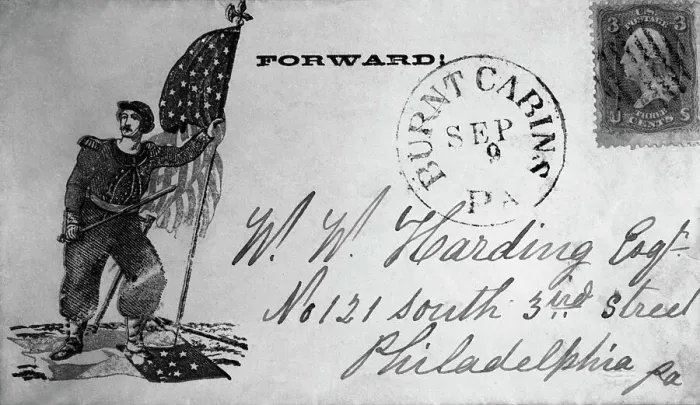 FORWARD!
BURNT CABINS
SEP
9
PA
3 U.S. POSTAGE 3
U THREE CENTS S
W. W. Harding Esqr.
No 121 South 3rd Street
Philadelphia
Pa